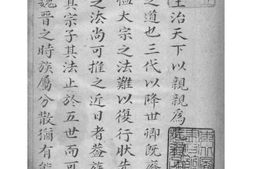 王治天下以親親爲
之道也三代以降世卿旣廢
大宗之法難以復行先
之法尚可推之近日者蓋族
其宗子其法止於五世而可
魏晉之時族屬分散猶有能